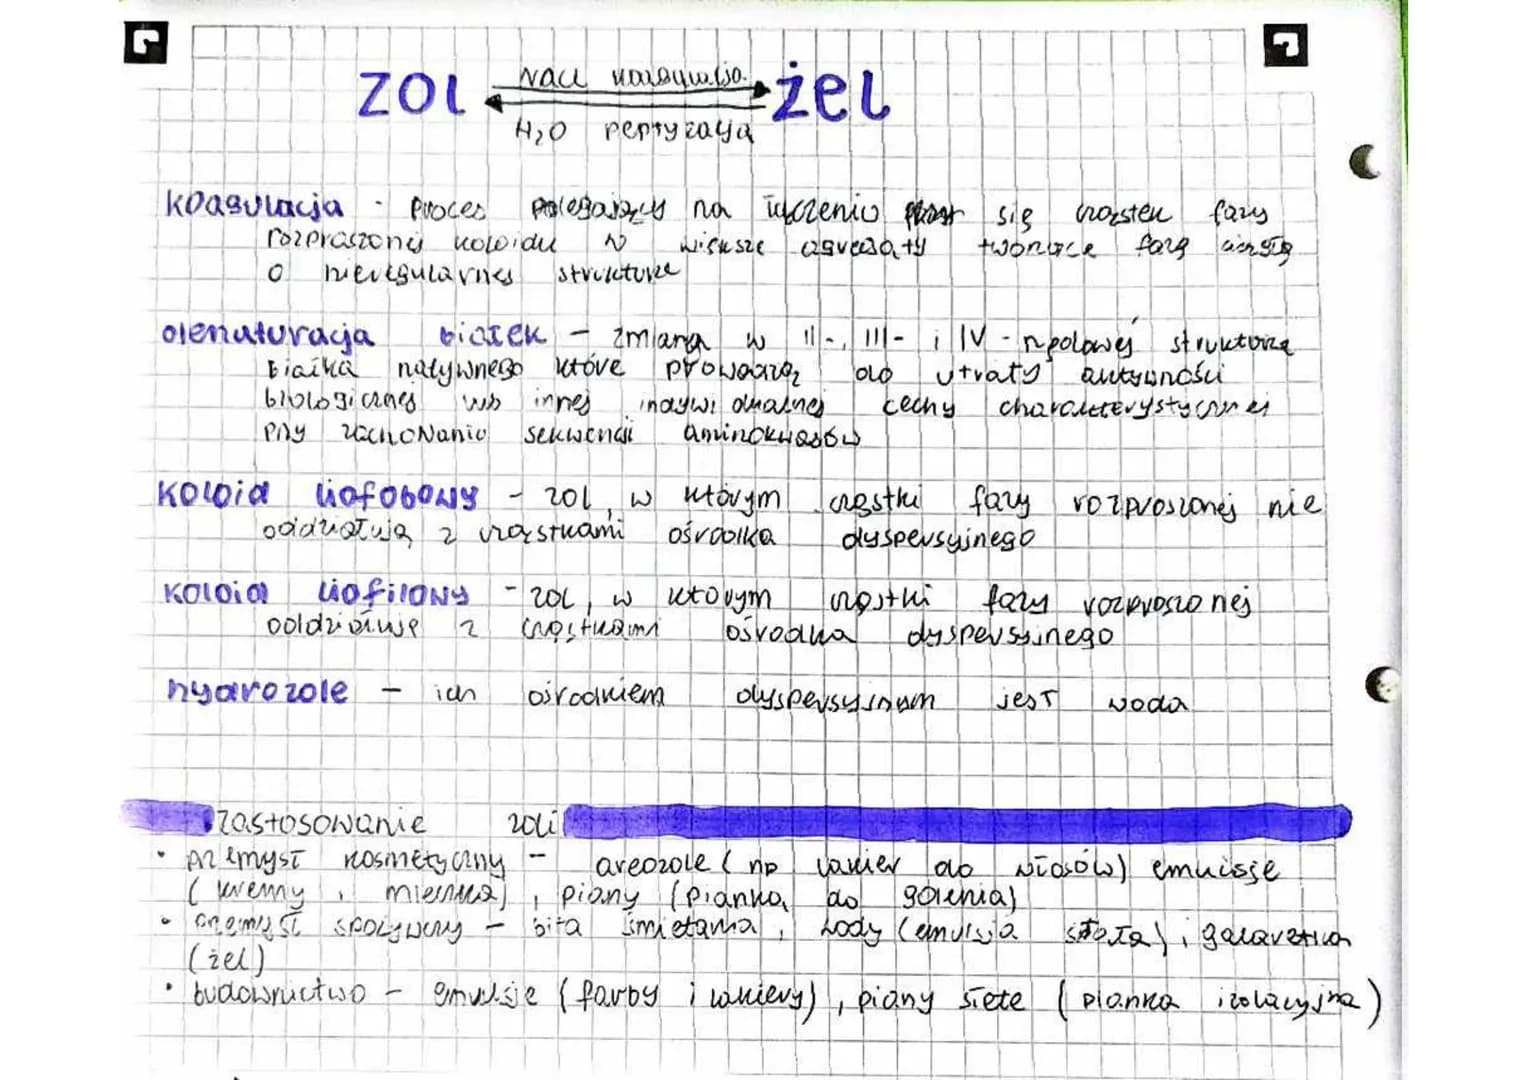 ZOl NaCl koagulacja żel
H₂O peptyzacja
koagulacja - proces polegający na łączeniu się cząstek fazy
rozproszonej koloidu w większe agregaty tworzące fazę ciągłą
o nieregularnej strukturze
denaturacja białek - zmiana w II-, III- i IV-rzędowej strukturze
białka natywnego które prowadzą do utraty aktywności
biologicznej lub innej indywidualnej cechy charakterystycznej
przy zachowaniu sekwencji aminokwasów
koloid liofobowy - zol, w którym cząstki fazy rozproszonej nie
oddziałują z cząstkami ośrodka dyspersyjnego
koloid liofilowy - zol, w którym cząstki fazy rozproszonej
oddziałuje z cząstkami ośrodka dyspersyjnego
hydrozole - ich ośrodkiem dyspersyjnym jest woda
zastosowanie zoli
• przemysł kosmetyczny - areozole (np lakier do włosów) emulsje
(kremy, mleczka), piany (pianka do golenia)
• przemysł spożywczy - bita śmietana, lody (emulsja stała), galaretka
(żel)
• budownictwo - emulsje (farby i lakiery), piany stałe (pianka izolacyjna)